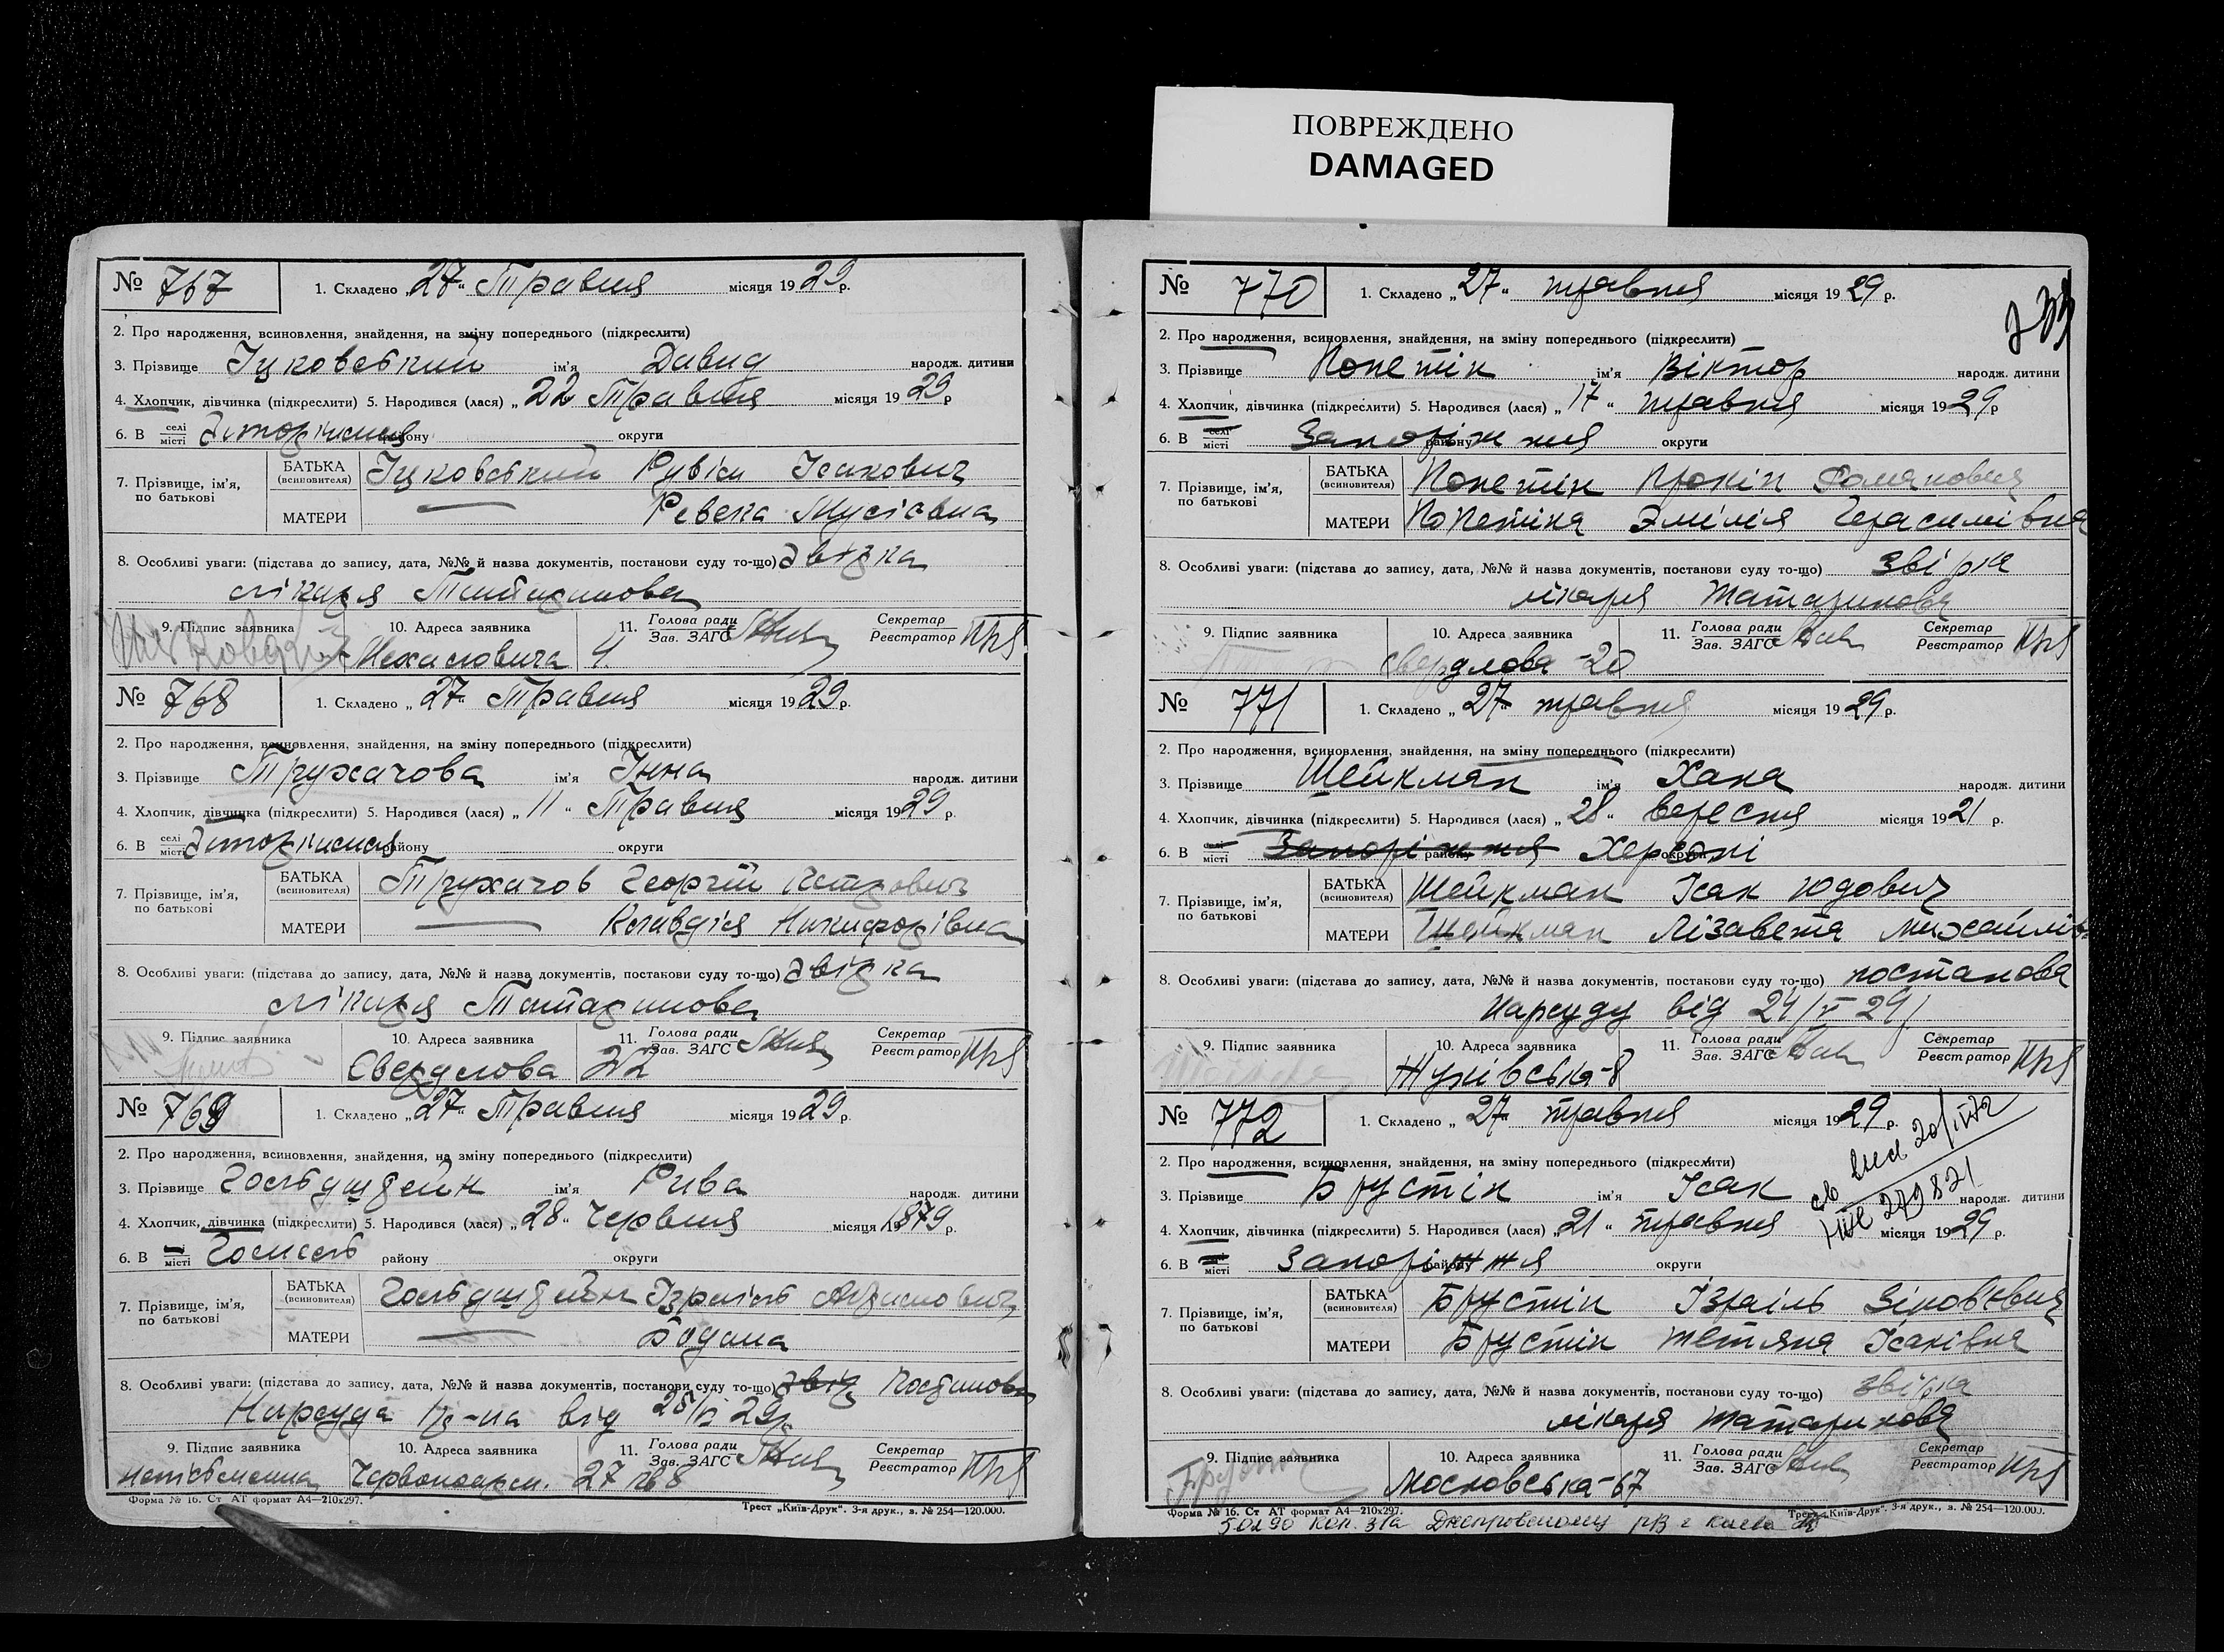 ПОВРЕЖДЕНО
DAMAGED
№ 767 1. Складено „27“ Травня місяця 1929 р.
2. Про народження, всиновлення, знайдення, на зміну попереднього (підкреслити)
3. Прізвище Іцковський ім'я Давид народж. дитини
4. Хлопчик, дівчинка (підкреслити) 5. Народився (лася) „22 Травня місяця 1929 р
6. В селі місті Запоріжжя району округи
7. Прізвище, ім'я, по батькові БАТЬКА (всиновителя) Іцковський Рувім Ісакович
МАТЕРИ — Ревека Мусіївна
8. Особливі уваги: (підстава до запису, дата, №№ й назва документів, постанови суду то-що) звірка
лікаря Татаринова
9. Підпис заявника 10. Адреса заявника 11. Голова ради Зав. ЗАГС Секретар Реєстратор
4
№ 768 1. Складено „27“ Травня місяця 1929 р.
2. Про народження, всиновлення, знайдення, на зміну попереднього (підкреслити)
3. Прізвище Тружачова ім'я Інна народж. дитини
4. Хлопчик, дівчинка (підкреслити) 5. Народився (лася) „11“ Травня місяця 1929 р.
6. В селі місті Запоріжжя району округи
7. Прізвище, ім'я, по батькові БАТЬКА (всиновителя) Тружачов Георгій Петрович
МАТЕРИ — Клавдія Никифорівна
8. Особливі уваги: (підстава до запису, дата, №№ й назва документів, постанови суду то-що) звірка
лікаря Татаринова
9. Підпис заявника 10. Адреса заявника 11. Голова ради Зав. ЗАГС Секретар Реєстратор
Свердлова 22
№ 769 1. Складено „27“ Травня місяця 1929 р.
2. Про народження, всиновлення, знайдення, на зміну попереднього (підкреслити)
3. Прізвище Гольдштейн ім'я Рива народж. дитини
4. Хлопчик, дівчинка (підкреслити) 5. Народився (лася) „28“ Червня місяця 1879 р.
6. В селі місті Гомель району округи
7. Прізвище, ім'я, по батькові БАТЬКА (всиновителя) Гольдштейн Ізраїль Абрамович
МАТЕРИ — Богдана
8. Особливі уваги: (підстава до запису, дата, №№ й назва документів, постанови суду то-що) звір Постанова
Нарсуда від 29р.
9. Підпис заявника 10. Адреса заявника 11. Голова ради Зав. ЗАГС Секретар Реєстратор
неписьменна Червоноарм. 27 кв 8
Форма № 16. Ст АТ формат А4—210х297. Трест „Київ-Друк“. 3-я друк., з. № 254—120.000.
№ 770 1. Складено „27“ травня місяця 1929 р.
2. Про народження, всиновлення, знайдення, на зміну попереднього (підкреслити)
3. Прізвище Попетін ім'я Віктор народж. дитини
4. Хлопчик, дівчинка (підкреслити) 5. Народився (лася) „17“ травня місяця 1929 р
6. В селі місті Запоріжжя району округи
7. Прізвище, ім'я, по батькові БАТЬКА (всиновителя) Попетін Прокіп Романович
МАТЕРИ Попетіна Эмілія Герасимівна
8. Особливі уваги: (підстава до запису, дата, №№ й назва документів, постанови суду то-що) звірка
лікаря Татаринова
9. Підпис заявника 10. Адреса заявника 11. Голова ради Зав. ЗАГС Секретар Реєстратор
Свердлова-20
№ 771 1. Складено „27“ травня місяця 1929 р.
2. Про народження, всиновлення, знайдення, на зміну попереднього (підкреслити)
3. Прізвище Шейкман ім'я Хана народж. дитини
4. Хлопчик, дівчинка (підкреслити) 5. Народився (лася) „28“ вересня місяця 1921 р.
6. В селі місті Запоріжжя району Херсоні округи
7. Прізвище, ім'я, по батькові БАТЬКА (всиновителя) Шейкман Ісак Юдович
МАТЕРИ Шейкман Лізавета Михайлів
8. Особливі уваги: (підстава до запису, дата, №№ й назва документів, постанови суду то-що) постанова
Нарсуду від 24/V 29
9. Підпис заявника 10. Адреса заявника 11. Голова ради Зав. ЗАГС Секретар Реєстратор
Жуківська-8
№ 772 1. Складено „27“ травня місяця 1929 р.
2. Про народження, всиновлення, знайдення, на зміну попереднього (підкреслити)
3. Прізвище Брустін ім'я Ісак народж. дитини
279821
4. Хлопчик, дівчинка (підкреслити) 5. Народився (лася) „21“ травня місяця 1929 р.
6. В селі місті Запоріжжя району округи
7. Прізвище, ім'я, по батькові БАТЬКА (всиновителя) Брустін Ізраіль Зіновьевич
МАТЕРИ Брустін Тетяна Ісаківна
8. Особливі уваги: (підстава до запису, дата, №№ й назва документів, постанови суду то-що) звірка
лікаря Татаринова
9. Підпис заявника 10. Адреса заявника 11. Голова ради Зав. ЗАГС Секретар Реєстратор
Московська-67
Форма № 16. Ст АТ формат А4—210х297. Трест „Київ-Друк“. 3-я друк., з. № 254—120.000.
Днепровскому г Киева